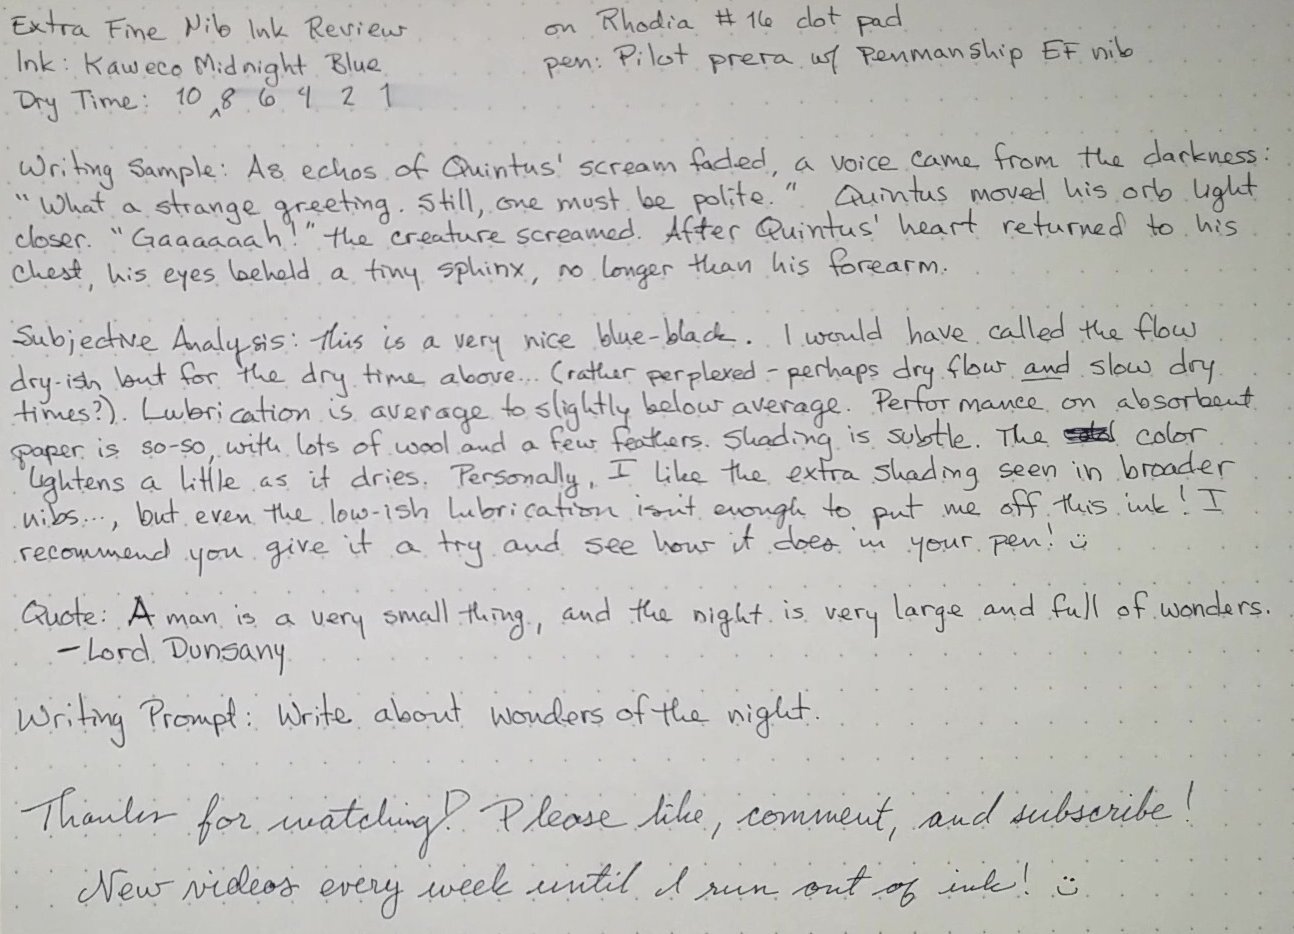 Extra Fine Nib Ink Review
on Rhodia #16 dot pad
Ink: Kaweco Midnight Blue
pen: Pilot prera w/ Penmanship EF nib
Dry Time: 10 ^8 6 4 2 1
Writing Sample: As echos of Quintus' scream faded, a voice came from the darkness:
"What a strange greeting. Still, one must be polite." Quintus moved his orb light
closer. "Gaaaaaah!" the creature screamed. After Quintus' heart returned to his
chest, his eyes beheld a tiny sphinx, no longer than his forearm.
Subjective Analysis: This is a very nice blue-black. I would have called the flow
dry-ish but for the dry time above... (rather perplexed - perhaps dry flow and slow dry
times?). Lubrication is average to slightly below average. Performance on absorbent
paper is so-so, with lots of wool and a few feathers. Shading is subtle. The color
lightens a little as it dries. Personally, I like the extra shading seen in broader
nibs..., but even the low-ish lubrication isn't enough to put me off this ink! I
recommend you give it a try and see how it does in your pen! :)
Quote: A man is a very small thing, and the night is very large and full of wonders.
- Lord Dunsany
Writing Prompt: Write about wonders of the night.
Thanks for watching! Please like, comment, and subscribe!
New videos every week until I run out of ink! :)